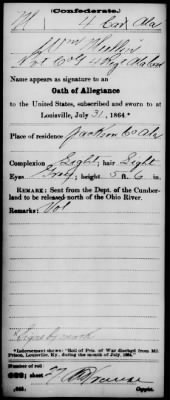 (Confederate.)
M 4 Cav. Ala
Wm Mullin
Pvt Co G 4 Regt Ala Cav
Name appears as signature to an
Oath of Allegiance
to the United States, subscribed and sworn to at
Louisville, July 31, 1864.*
Place of residence Jackson Co Ala
Complexion Light; hair Light
Eyes Gray; height 5 ft. 6 in.
REMARK: Sent from the Dept. of the Cumber-
land to be released north of the Ohio River.
Remarks: Vol
Signed
*Indorsement shows: "Roll of Pris. of War discharged from Mil.
Prison, Louisville, Ky., during the month of July, 1864."
Number of roll:
sheet
Copyist.